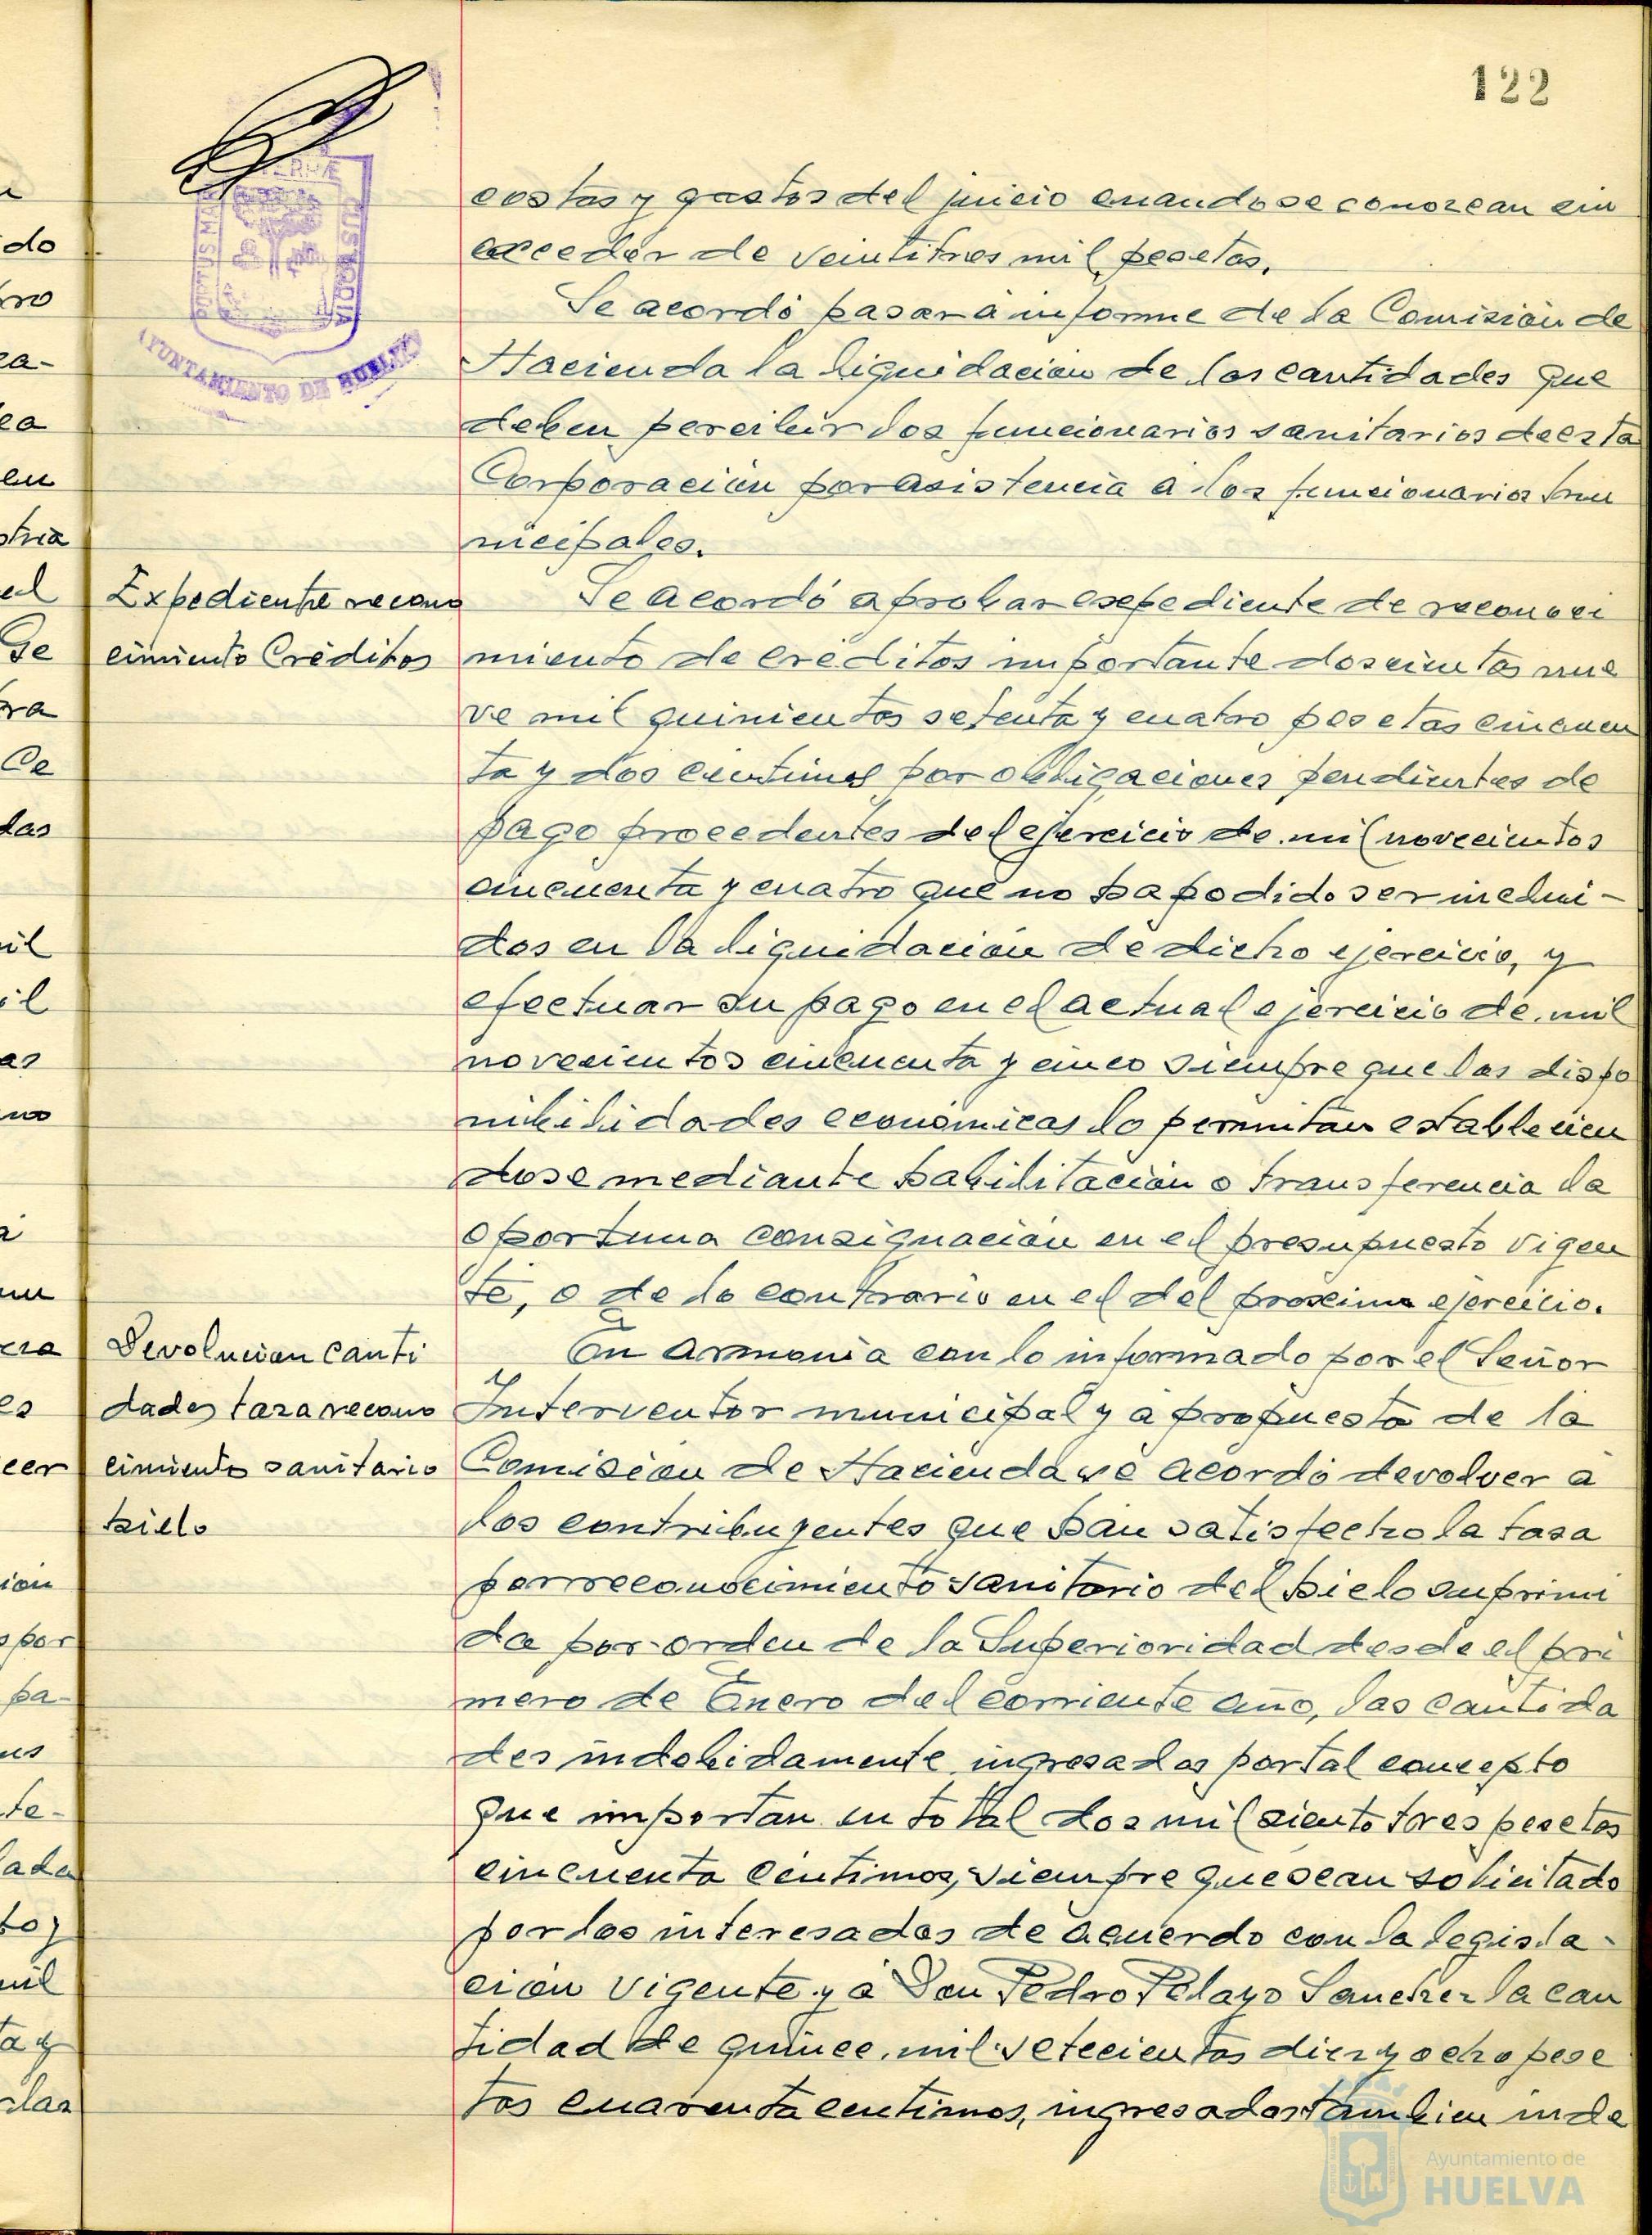 122
PORTUS MARIS ET TERRÆ CUSTODIA
AYUNTAMIENTO DE HUELVA
costas y gastos del juicio cuando se conozcan sin
exceder de veintitres mil pesetas.
Se acordó pasar á informe de la Comisión de
Hacienda la liquidación de las cantidades que
deben percibir los funcionarios sanitarios de esta
Corporación por asistencia á los funcionarios mu
nicipales.
Expediente recono
cimiento Créditos
Se acordó aprobar expediente de reconoci
miento de créditos importante doscientas nue
ve mil quinientas setenta y cuatro pesetas cincuen
ta y dos centimos por obligaciones pendientes de
pago procedentes del ejercicio de mil novecientos
cincuenta y cuatro que no ha podido ser inclui-
das en la liquidación de dicho ejercicio, y
efectuar su pago en el actual ejercicio de mil
novecientos cincuenta y cinco siempre que las dispo
nibilidades económicas lo permitan establecien
dose mediante habilitación o transferencia la
oportuna consignación en el presupuesto vigen
te, o de lo contrario en el del proximo ejercicio.
Devolucion canti
dades tasa recono
cimiento sanitario
hielo
En armonia con lo informado por el Señor
Interventor municipal y á propuesta de la
Comisión de Hacienda se acordó devolver á
los contribuyentes que han satisfecho la tasa
por reconocimiento sanitario del hielo suprimi
da por orden de la Superioridad desde el pri
mero de Enero del corriente año, las cantida
des indebidamente ingresadas por tal concepto
que importan en total dos mil ciento tres pesetas
cincuenta centimos, siempre que sean solicitado
por los interesados de acuerdo con la legisla-
ción vigente y á Don Pedro Pelayo Sanchez la can
tidad de quince mil setecientas diez y ocho pese
tas cuarenta centimos, ingresadas tambien inde
Ayuntamiento de
HUELVA